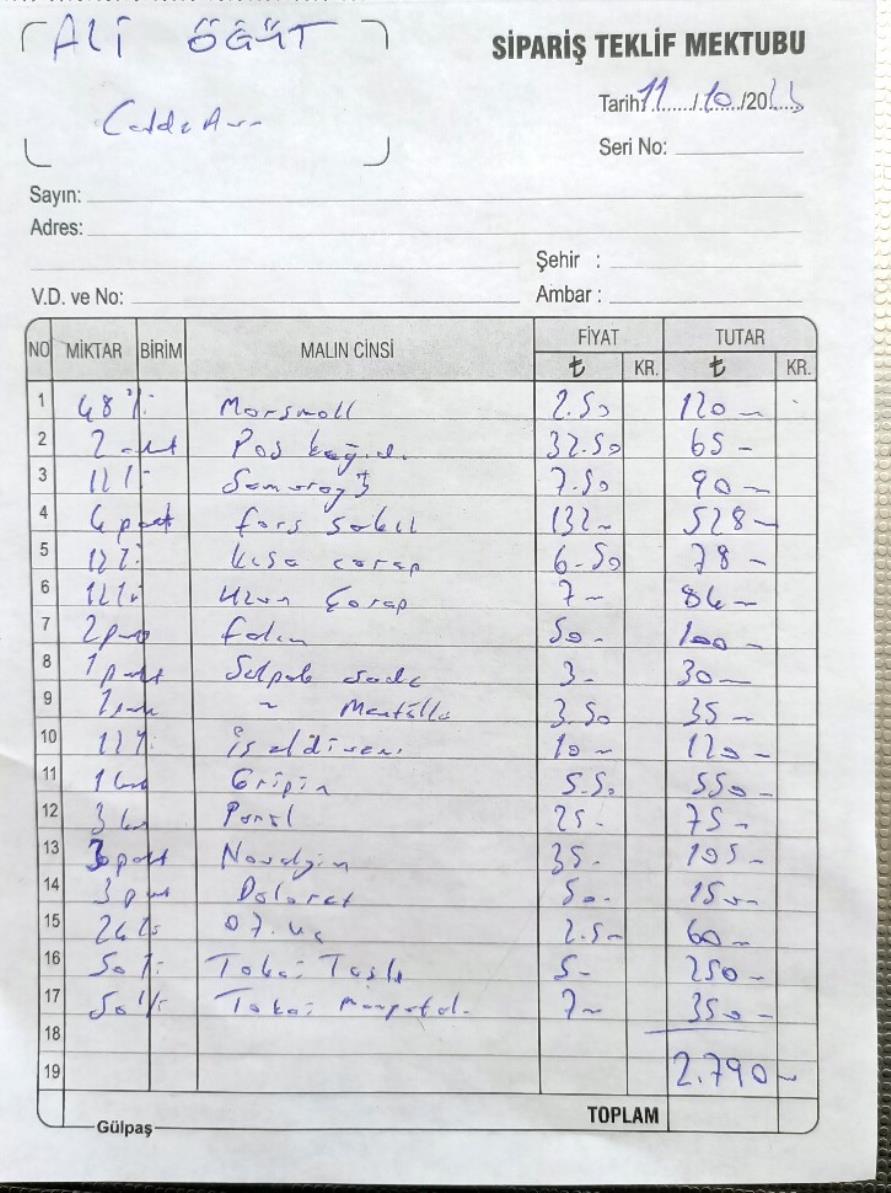 ALİ ÖĞÜT
SİPARİŞ TEKLİF MEKTUBU
Tarih: 11/10/20
Seri No:
Sayın:
Adres:
Şehir :
V.D. ve No:
Ambar :
NO MİKTAR BİRİM MALIN CİNSİ FİYAT TUTAR
₺ KR. ₺ KR.
1 48 Marsmall 2.50 120
2 2 Pos kağıdı 32.50 65
3 12 7.50 90
4 4 paket fors sakıl 132 528
5 12 kısa çorap 6.50 78
6 12 Uzun Çorap 7 84
7 2 50 100
8 1 paket Selpak Sade 3 30
9 " Mentollü 3.50 35
10 12 İş eldiveni 10 120
11 1 Gripin 5.50 550
12 3 Parol 25 75
13 3 paket Novalgin 35 105
14 3 Dolorex 50 150
15 24 07. uç 2.50 60
16 50 Tokai Taşlı 5 250
17 50 Tokai 7 350
18
19 2.790
TOPLAM
Gülpaş